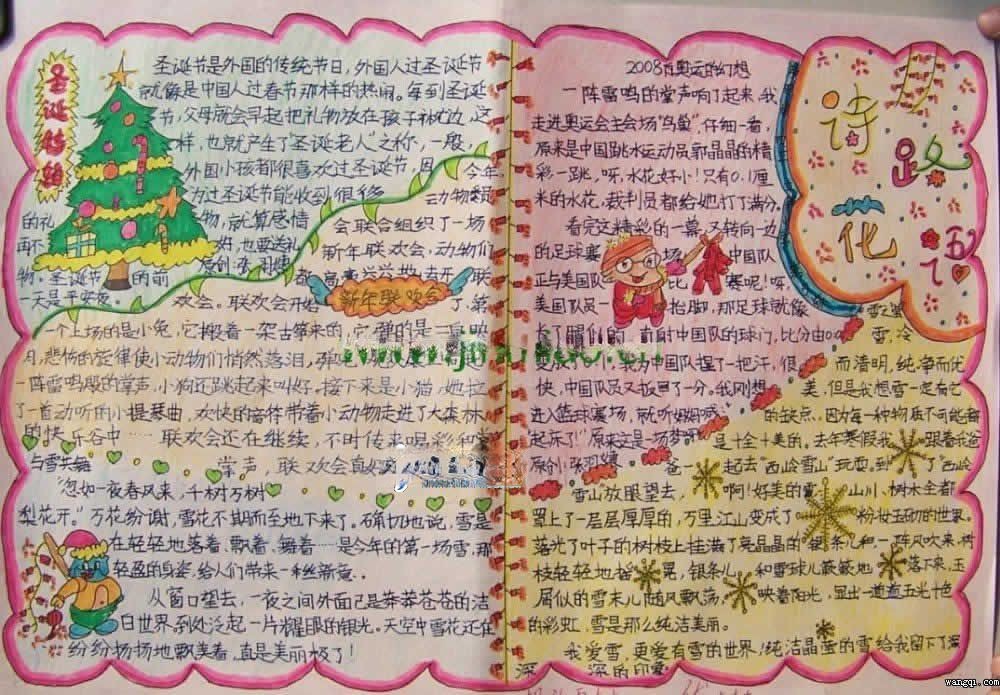 圣诞特辑
圣诞节是外国的传统节日，外国人过圣诞节
就像是中国人过春节那样的热闹。每到圣诞
节，父母就会早起把礼物放在孩子枕边，这
样，也就产生了“圣诞老人”之称，一般，
外国小孩都很喜欢过圣诞节，因
为过圣诞节能收到很多
的礼物，就算感情
再不好，也要送礼
物。圣诞节的前
一天是平安夜
今年
动物委员
会联合组织了一场
新年联欢会，动物们
都高高兴兴地去开联
新年联欢会
欢会。联欢会开始了，第
一个上场的是小兔，它搬着一架古筝来的，它弹的是二泉映
月，悲伤的旋律使小动物们悄然落泪，弹完
一阵雷鸣般的掌声，小狗还跳起来叫好。接下来是小猫，她拉
了一首动听的小提琴曲，欢快的音符带着小动物走进了大森林
的快乐谷中……联欢会还在继续，不时传来喝彩和
掌声，联欢会真好
与雪共舞
“忽如一夜春风来，千树万树
梨花开。”万花纷谢，雪花不期而至地下来了。确切地说，雪是
在轻轻地落着、飘着、舞着……是今年的第一场雪，那
轻盈的身姿，给人们带来一种丝新意。
从窗口望去，一夜之间外面已是莽莽苍苍的洁
白世界，到处泛起一片耀眼的银光。天空中雪花还在
纷纷扬扬地飘美着，真是美丽极了！
2008的奥运的幻想
一阵雷鸣的掌声响了起来，我
走进奥运会主会场“鸟巢”，仔细一看，
原来是中国跳水运动员郭晶晶的精
彩一跳，呀，水花好小！只有0.1厘
米的水花，裁判员都给她打了满分。
看完这精彩的一幕，又转向一边
的足球赛场，中国队
正与美国队比赛呢！呀，
美国队员一抬脚，那足球就像
的射中国队的球门，比分由0:0
变成了0:1，我为中国队捏了一把汗，很
快，中国队员又扳回了一分。我刚想
进入篮球赛场，就听妈妈喊
起床了！”原来这是一场梦
诗
花
雪，冷
而清明，纯净而优
美，但是我想雪一定有它
的缺点，因为每一种物质不可能都
是十全十美的。去年寒假我跟着我爸
爸一起去“西岭雪山”玩耍，到了“西岭
雪山放眼望去，啊！好美的雪，山川、树木全都
罩上了一层层厚厚的，万里江山变成了粉妆玉砌的世界。
落光了叶子的树枝上挂满了亮晶晶的银条儿和一阵风吹来，树
枝轻轻地摇晃，银条儿和雪球儿簌簌地落下来，玉
屑似的雪末儿随风飘荡，映着阳光，显出一道道五光十色
的彩虹，雪是那么纯洁美丽。
我爱雪，更爱有雪的世界！纯洁晶莹的雪给我留下了深
深深的印象
wangqi.com